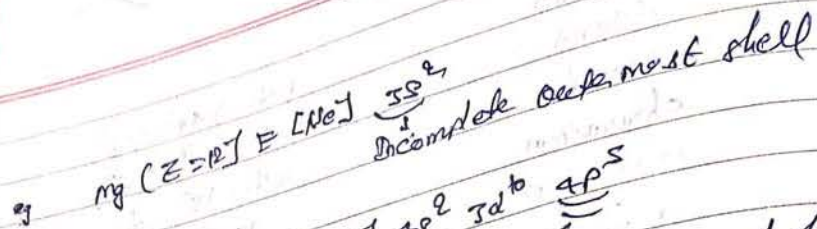 eg Mg (Z=12) = [Ne] 3s²
Incomplete outermost shell
4s² 3d¹⁰ 4p⁵